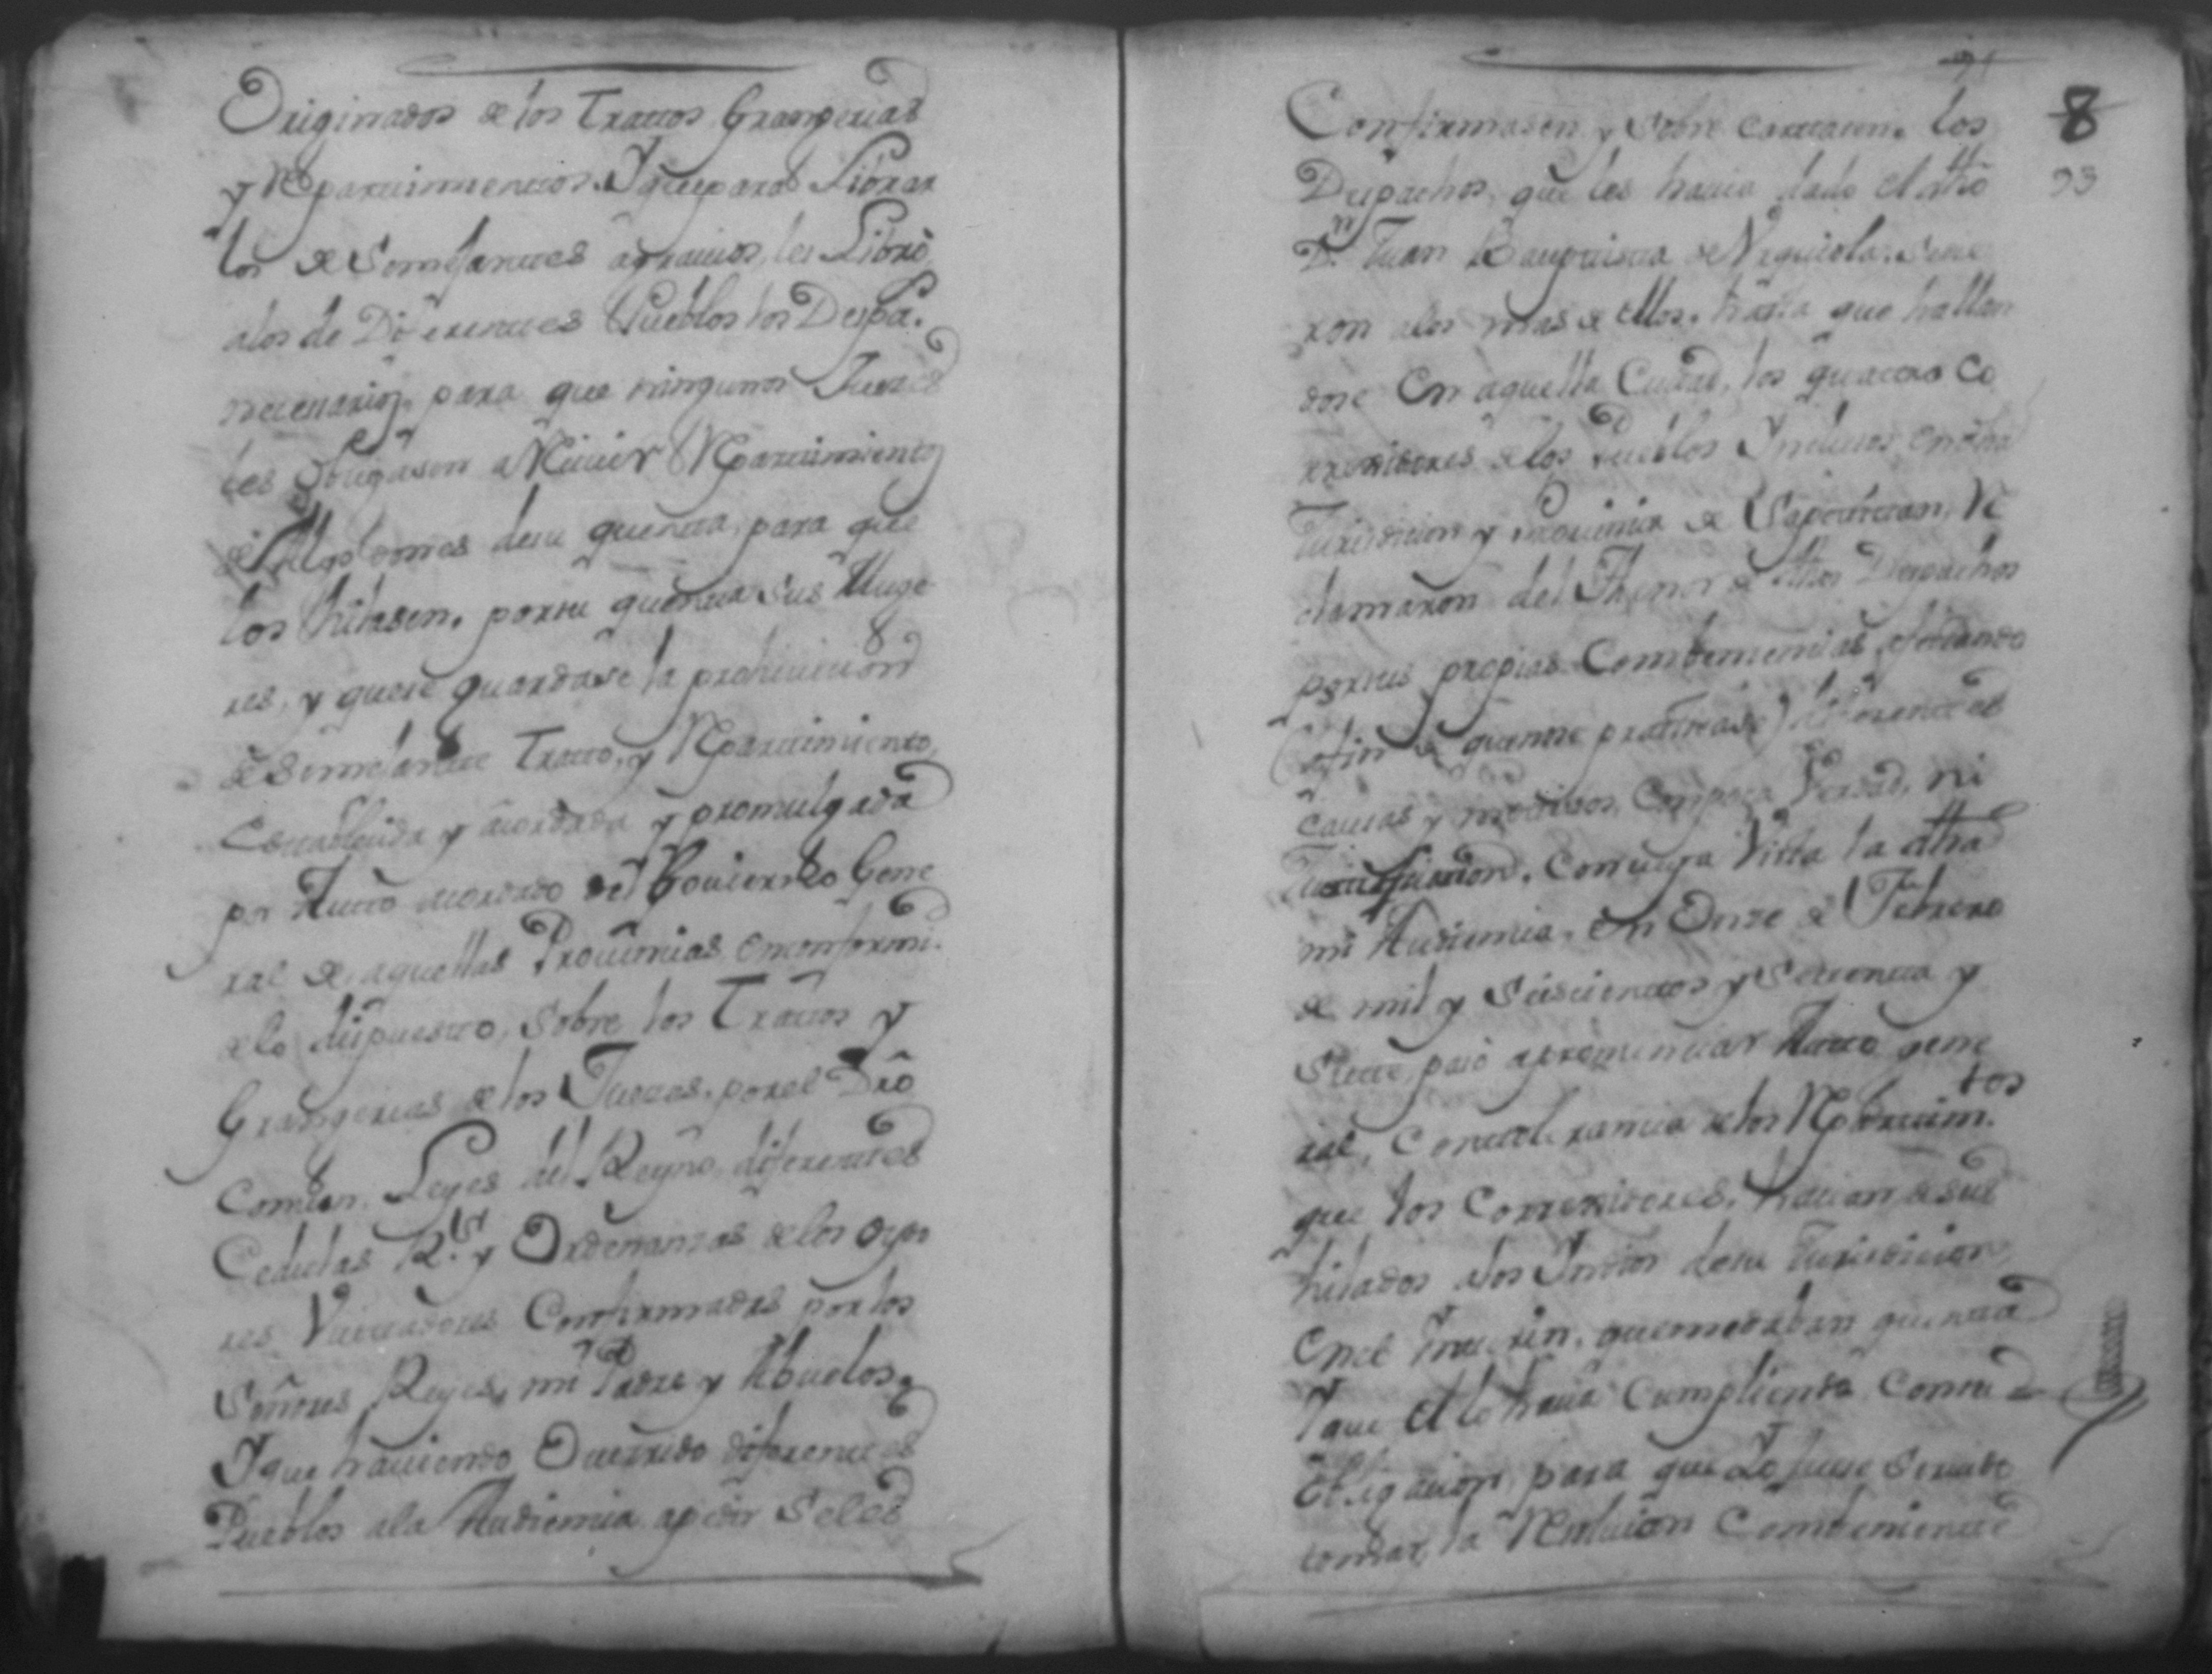 Originados de los Trattos Grangerias
y Repartimientos. Y que para Librar
los de Semejantes agravios, les Libró
a los de Diferentes Pueblos los Despa.
necesarios, para que ningunos Juezes
les Obligasen a Reciuir Repartimientos
de Algodones de su quenta, para que
los hilasen. por su quenta sus Muge
res, y que se guardase la prohiuicion
de Semejante Tratto, y Repartimiento,
Establecida y acordada y promulgada
por Autto acordado del Gouierno Gene
ral de aquellas Prouincias, en conformi.
de lo dispuesto, sobre los Trattos y
Grangerias de los Juezes. por el Dro
Comun. Leyes del Reyno, diferentes
Cedulas Rs. y Ordenanzas de los Oydo
res Vicitadores Confirmadas por los
Señores Reyes, mi Padre y Abuelos.
Y que hauiendo Ocurrido diferentes
Pueblos a la Audiencia a pedir Se les
8
93
Confirmasen y Sobre cartasen. los
Despachos, que les hauia dado el dho
Dn. Juan Bauptista de Vrquiola. Se die
ron a los mas de ellos. hasta que hallan
dose En aquella Ciudad, los quatro Co
rregidores de los Pueblos Yncluzos en dha
Jurisdicion y Prouincia de Sapotitan, Re
clamaron del Thenor de dhos Despachos
por sus propias Combeniencias, afectando
(a fin de que no se practicase) diferentes
causas y motibos, Con poca Verdad, ni
Justificacion. Con cuya Vista la dha
mi Audiencia. en Onze de Febrero
de mil y Seiscientos y Setenta y
Siete, pasó a prouenciar Autto gene
ral, Con tolerancia de los Repartimtos.
que los Corregidores, hacian de sus
hilados a los Yndios de su Jurisdicion
En el Ynterin. que me daban quenta
Y que el lo hauia Cumpliendo Con su
Obligacion, para que Yo fuese Seruido
tomar, la Resolucion Combeniente